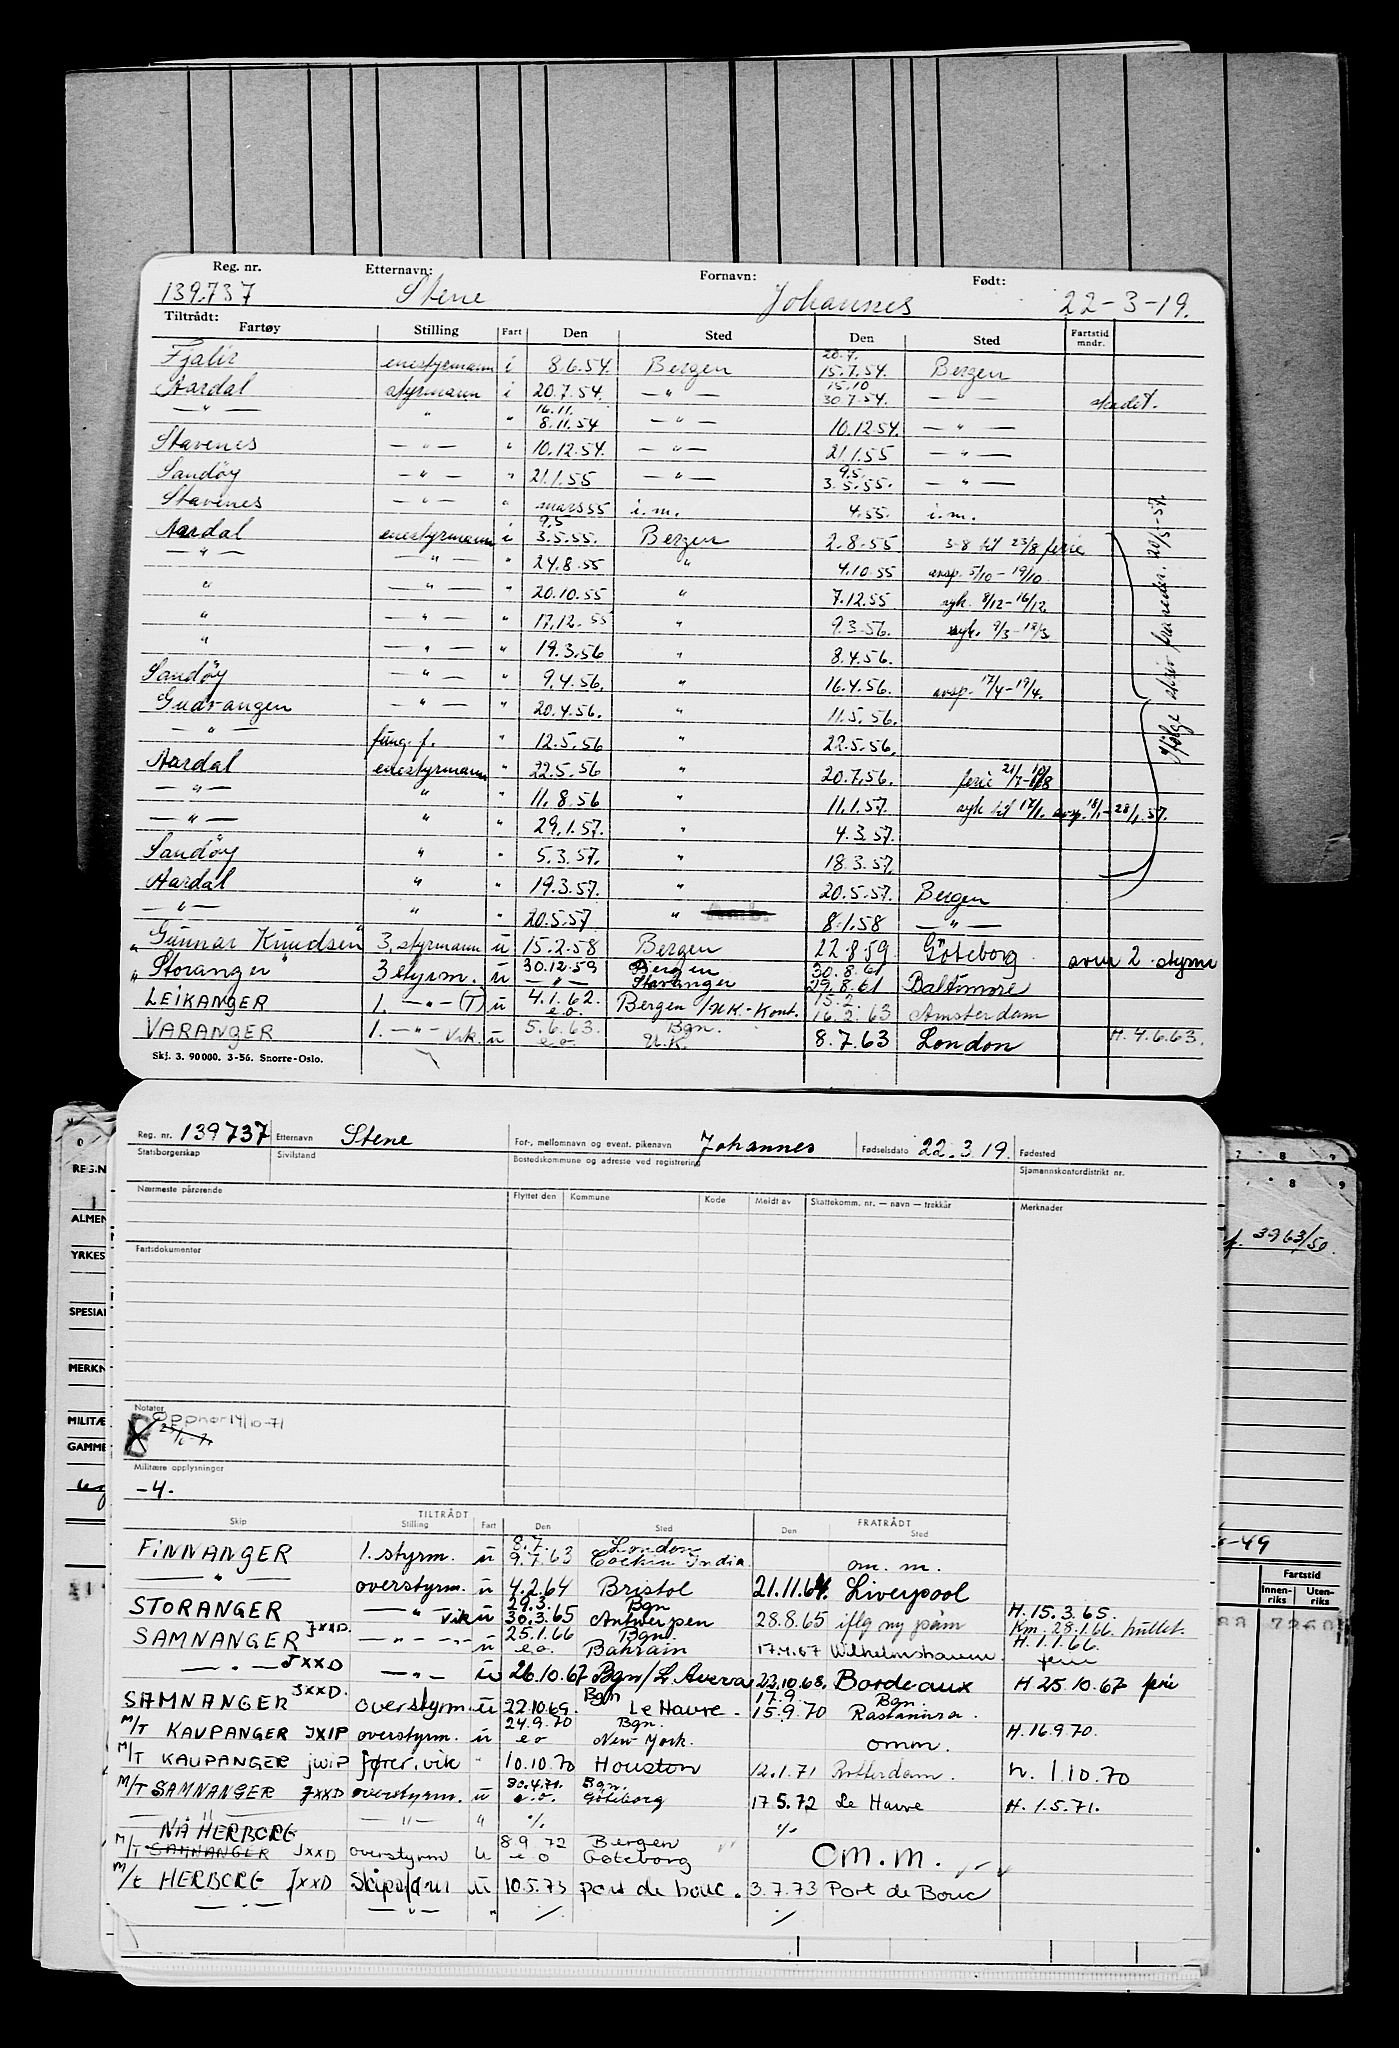 Reg. nr. Etternavn: Fornavn: Født:
139.737 Stene Johannes 22-3-19.
Tiltrådt:
Fartøy Stilling Fart Den Sted Den Sted Fartstid mndr.
Fjalir enestyrmann i 8.6.54. Bergen 20.7. 15.7.54. Bergen
Aardal styrmann i 20.7.54. — " — 15.10 30.7.54. — " — skadet.
— " — " " 16.11. 8.11.54 — " — 10.12.54. — " —
Stavenes — " — " 10.12.54. — " — 21.1.55 — " —
Sandöy — " — " 21.1.55 — " — 9.5. 3.5.55. — " —
Stavenes — " — " mars 55 i.m. 4.55. i.m.
Aardal enestyrmann i 9.5 3.5.55. Bergen 2.8.55 3-8 til 23/8 ferie
— " — — " — " 24.8.55 " 4.10.55 avsp. 5/10 - 19/10
" — " — " 20.10.55 " 7.12.55 syk. 8/12 - 16/12
" — " — " 17.12.55 " 9.3.56. syk. 9/3 - 18/3
" — " — " 19.3.56 " 8.4.56.
Sandöy — " — " 9.4.56. " 16.4.56. avsp. 17/4 - 19/4.
Gudvangen — " — " 20.4.56. " 11.5.56.
— " — fung. f. " 12.5.56 " 22.5.56.
Aardal enestyrmann " 22.5.56 " 20.7.56. ferie 21/7 - 10/8
— " — " " 11.8.56 " 11.1.57. syk til 17/1. avsp. 18/1 - 28/1.57.
— " — " " 29.1.57. " 4.3.57.
Sandöy " " 5.3.57. " 18.3.57.
Aardal " " 19.3.57. " 20.5.57. Bergen
— " — " " 20.5.57 " 8.1.58 — " —
"Gunnar Knudsen" 3. styrmann u 15.2.58 Bergen 22.8.59 Göteborg som 2. styrm
"Storanger" 3 styrm. u 30.12.59 — " — Bergen Stavanger 30.8.61 29.8.61 Baltimore
LEIKANGER 1. — " — (T) u 4.1.62. e.o. Bergen /N.K.-Kont. 15.2. 16.2.63 Amsterdam
VARANGER 1. — " — Vik. u 5.6.63. e.o. Bgn. U.K. 8.7.63 London H. 4.6.63.
Skj. 3. 90 000. 3-56. Snorre-Oslo.
Ifølge skriv fra reder. 20/5-57.
Reg. nr. 139737 Etternavn Stene For-, mellomnavn og event. pikenavn Johannes Fødselsdato 22.3.19. Fødested
Statsborgerskap Sivilstand Bostedskommune og adresse ved registrering Sjømannskontordistrikt nr.
Nærmeste pårørende Flyttet den Kommune Kode Meldt av Skattekomm. nr. — navn — trekkår Merknader
Fartsdokumenter
Notater
Opphør 14/10-71
Militære opplysninger
-4.
TILTRÅDT FRATRÅDT
Skip Stilling Fart Den Sted Den Sted
FINNANGER 1. styrm. u 8.7. 9.7.63 London Cochin India om. m.
— " — overstyrm. u 4.2.64 Bristol 21.11.64. Liverpool
STORANGER — " — Vik u 29.3. 30.3.65 Bgn Antwerpen 28.8.65 iflg ny påm H. 15.3.65.
SAMNANGER JXXD. — " — u 25.1.66 e.o. Bgn. Bahrain 17.4.67 Wilhelmshaven Km. 28.1.66 kullet. H. 1.1.66. ferie
— " — JXXD — " — u 26.10.67 Bgn/L Avera 22.10.68. Bordeaux H 25.10.67 ferie
SAMNANGER JXXD. overstyrm. u 22.10.69. Bgn Le Havre. 17.9. 15.9.70 Bgn. Rastanura.
M/T KAUPANGER JXIP overstyrm. u 24.9.70 e o Bgn. New York. omm. H. 16.9.70.
M/T KAUPANGER JWIP fører. vik " 10.10.70 Houston 12.1.71 Rotterdam. H. 1.10.70
M/T SAMNANGER JXXD overstyrm. u 30.4.71. e.o. Bgn. Göteborg 17.5.72 Le Havre H. 1.5.71.
— " — " %. %.
NÅ HERBORG
M/T SAMNANGER JXXD overstyrm u 8.9.72 e o Bergen Göteborg om. m.
M/t HERBORG JXXD Skipsfører u 10.5.73 port de bouc. 3.7.73 Port de Bouc
— " — — " — " %. %.
REG.N
ALMEN
YRKES
SPESIAL
MERKN
MILITÆ
GAMME
7 8 9
8 9
3963/50.
-49
Fartstid
Innen-riks Uten-riks